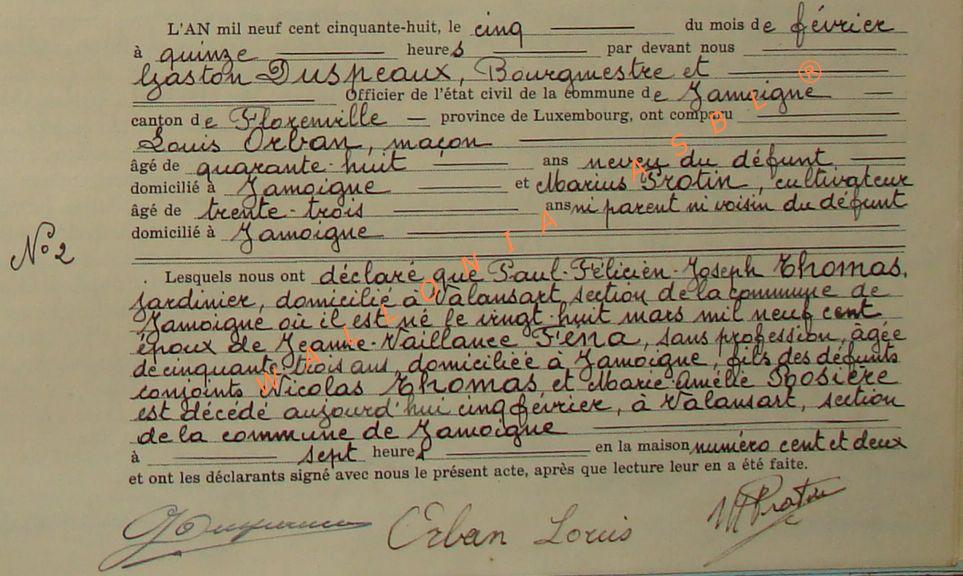 L'AN mil neuf cent cinquante-huit, le cinq du mois de février
à quinze heures par devant nous
Gaston Duspeaux, Bourgmestre et
Officier de l'état civil de la commune de Jamoigne
canton de Florenville province de Luxembourg, ont comparu
Louis Orban, maçon
âgé de quarante-huit ans neveu du défunt
domicilié à Jamoigne et Marius Protin, cultivateur
âgé de trente-trois ans ni parent ni voisin du défunt
domicilié à Jamoigne
No 2
Lesquels nous ont déclaré que Paul-Félicien-Joseph Thomas,
jardinier, domicilié à Valansart, section de la commune de
Jamoigne où il est né le vingt-huit mars mil neuf cent
époux de Jeanne-Vaillance Féna, sans profession, âgée
de cinquante-trois ans, domiciliée à Jamoigne, fils des défunts
conjoints Nicolas Thomas et Marie-Amélie Rosière
est décédé aujourd'hui cinq février, à Valansart, section
de la commune de Jamoigne
à sept heures en la maison numéro cent et deux
et ont les déclarants signé avec nous le présent acte, après que lecture leur en a été faite.
Orban Louis
M Protin
WALLONIA ASBL ®